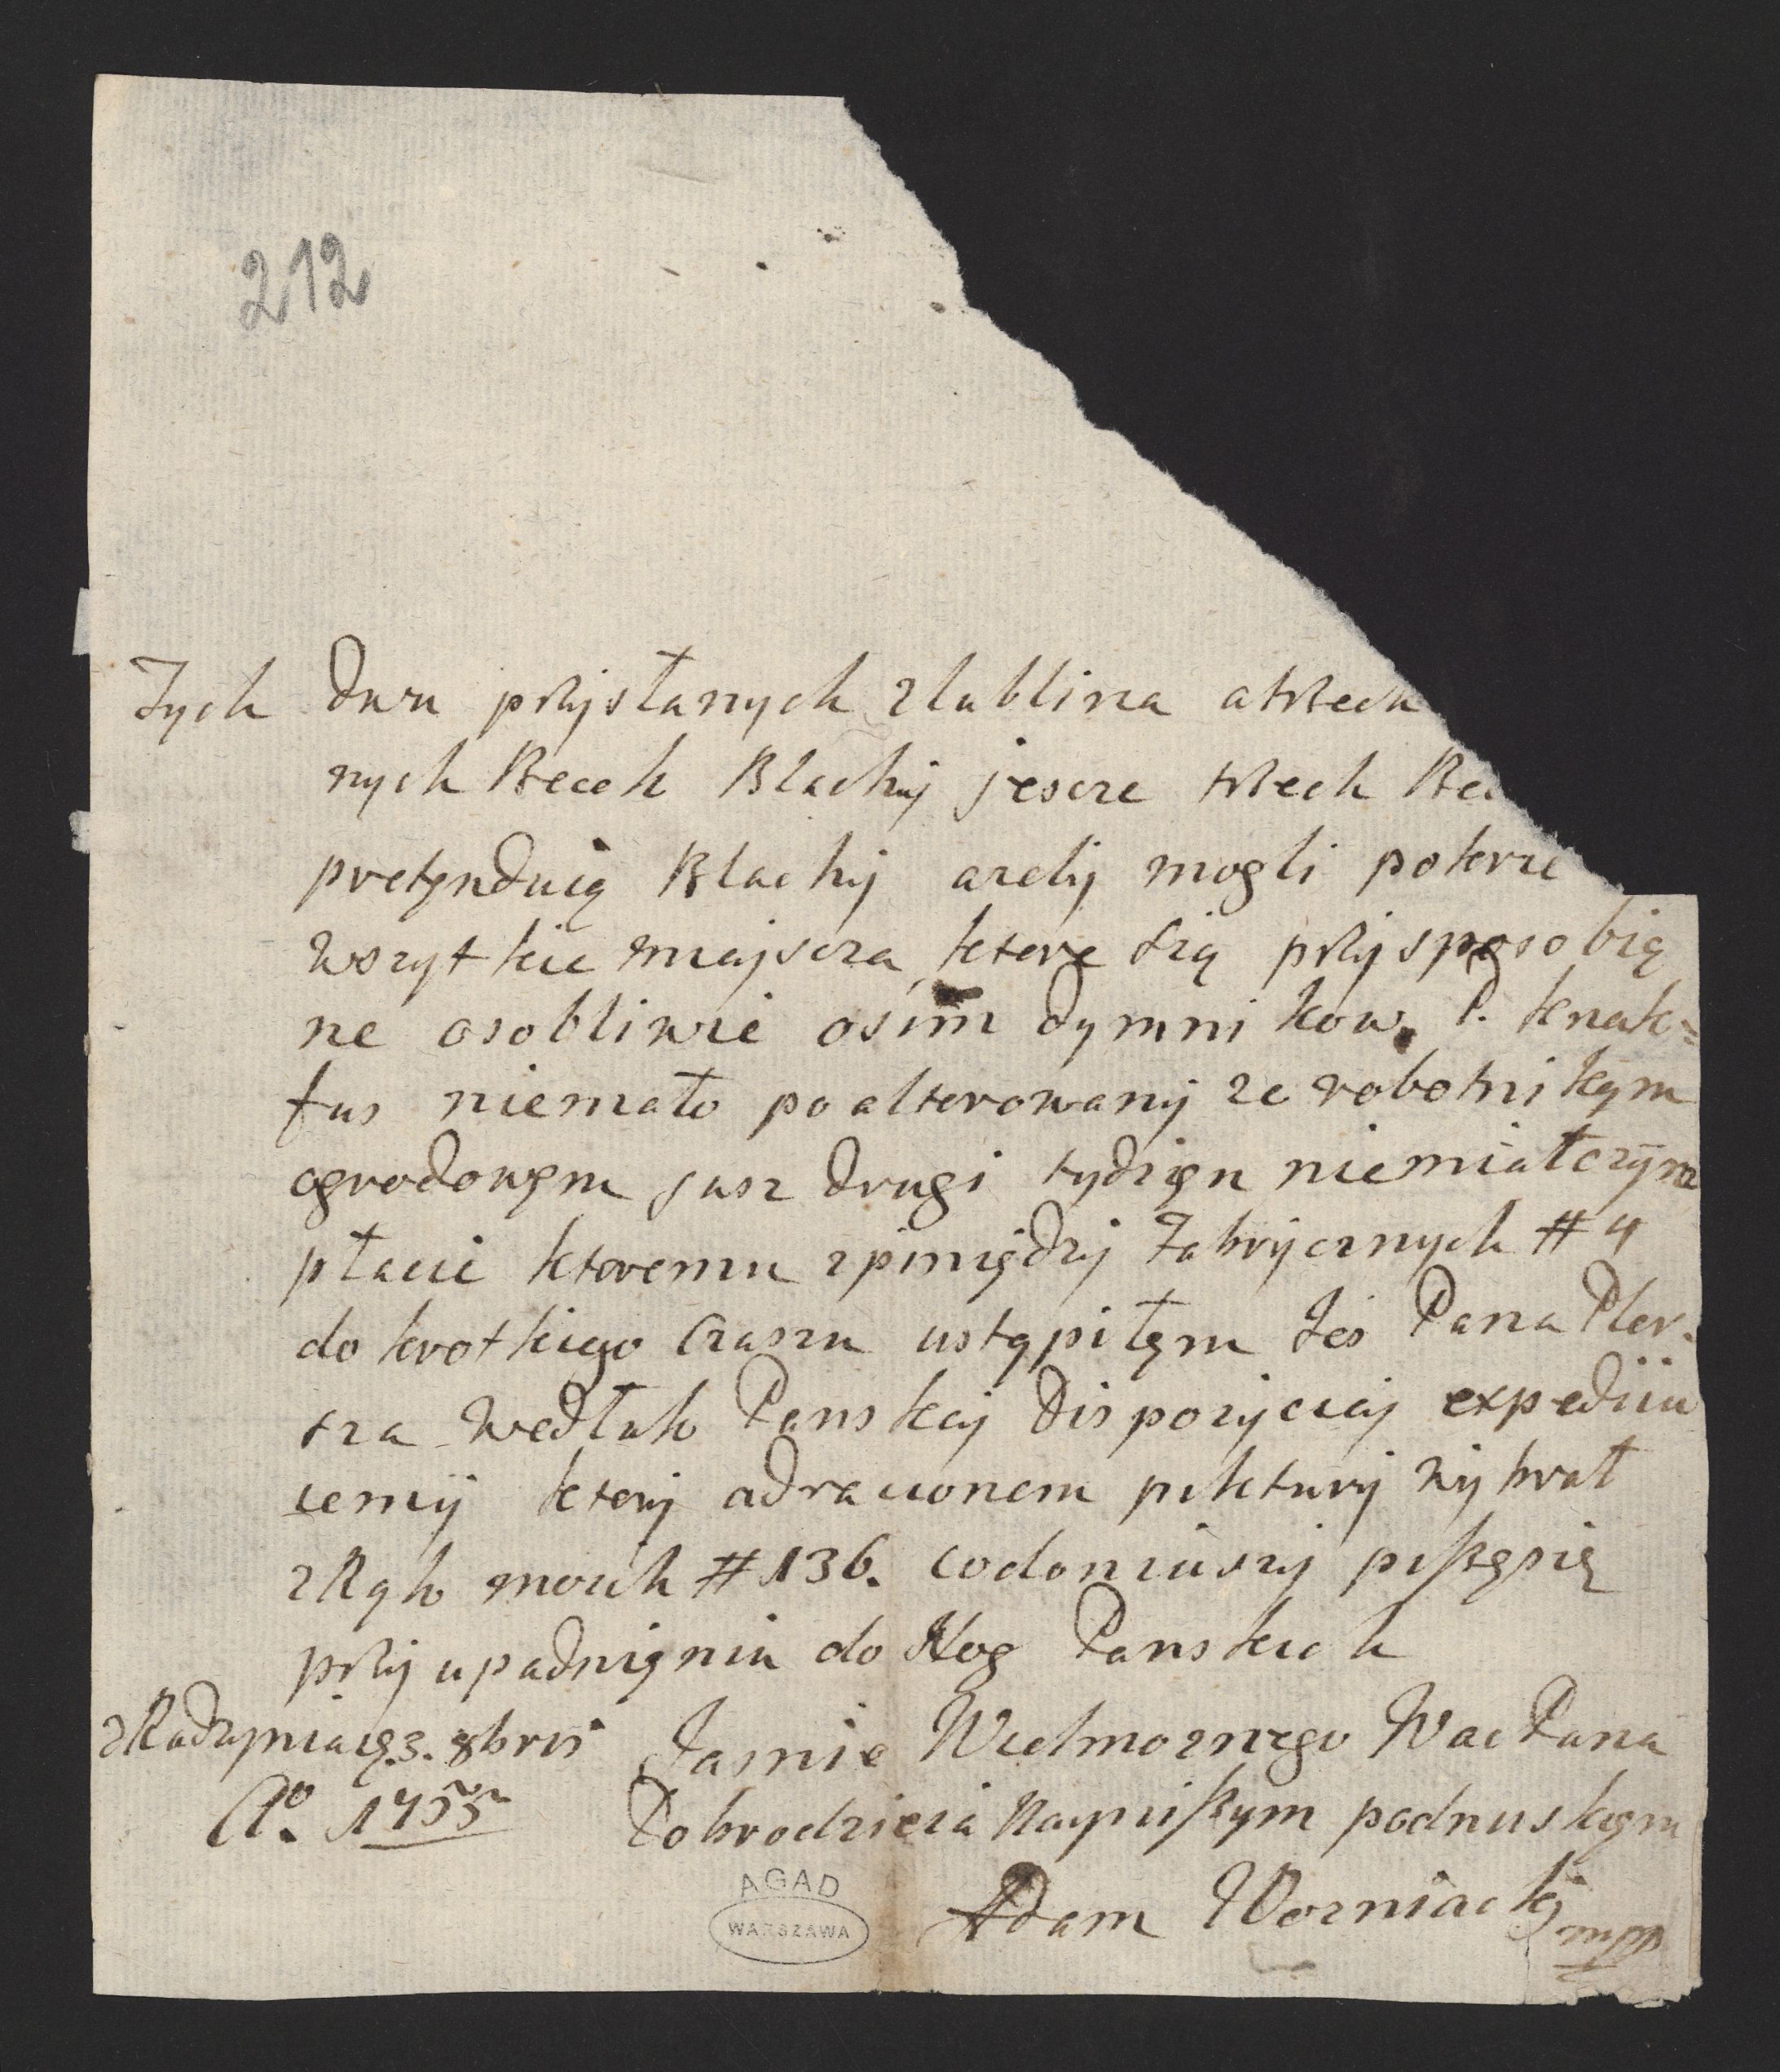 212
Tych dwu przysłanych z lublina a trzech
nych Becek Blachy jescze trzech Bec
pretynduią Blachy azeby mogli pokrze
wszytkie miejscza ktore szą przysposobią
ne osobliwie osim dymnikow. P. Knak=
fus niemało poalterowany ze robotnikym
ogrodowym jusz drugi tydzięn niemiał czym
płacić ktoremu z piniędzy Fabrycznych # 4
do krotkiego Czaszu ustąpiłęm Jeś Pana Pler.
sza wedłuk Panskiej Dispozyciej expediiu
iemy ktory ad racionem pikturÿ wybrał
z Rąk moich # 136. co doniuszy piszęsię
przy upadnięniu do Nog Panskich
z Radzynia d. 3. 8bris Jasnie Wielmoznego Wac Pana
Aº. 1755 Dobrodzieia Nayniszym podnuskęm
Adam Wozniacky
mpp
AGAD
WARSZAWA